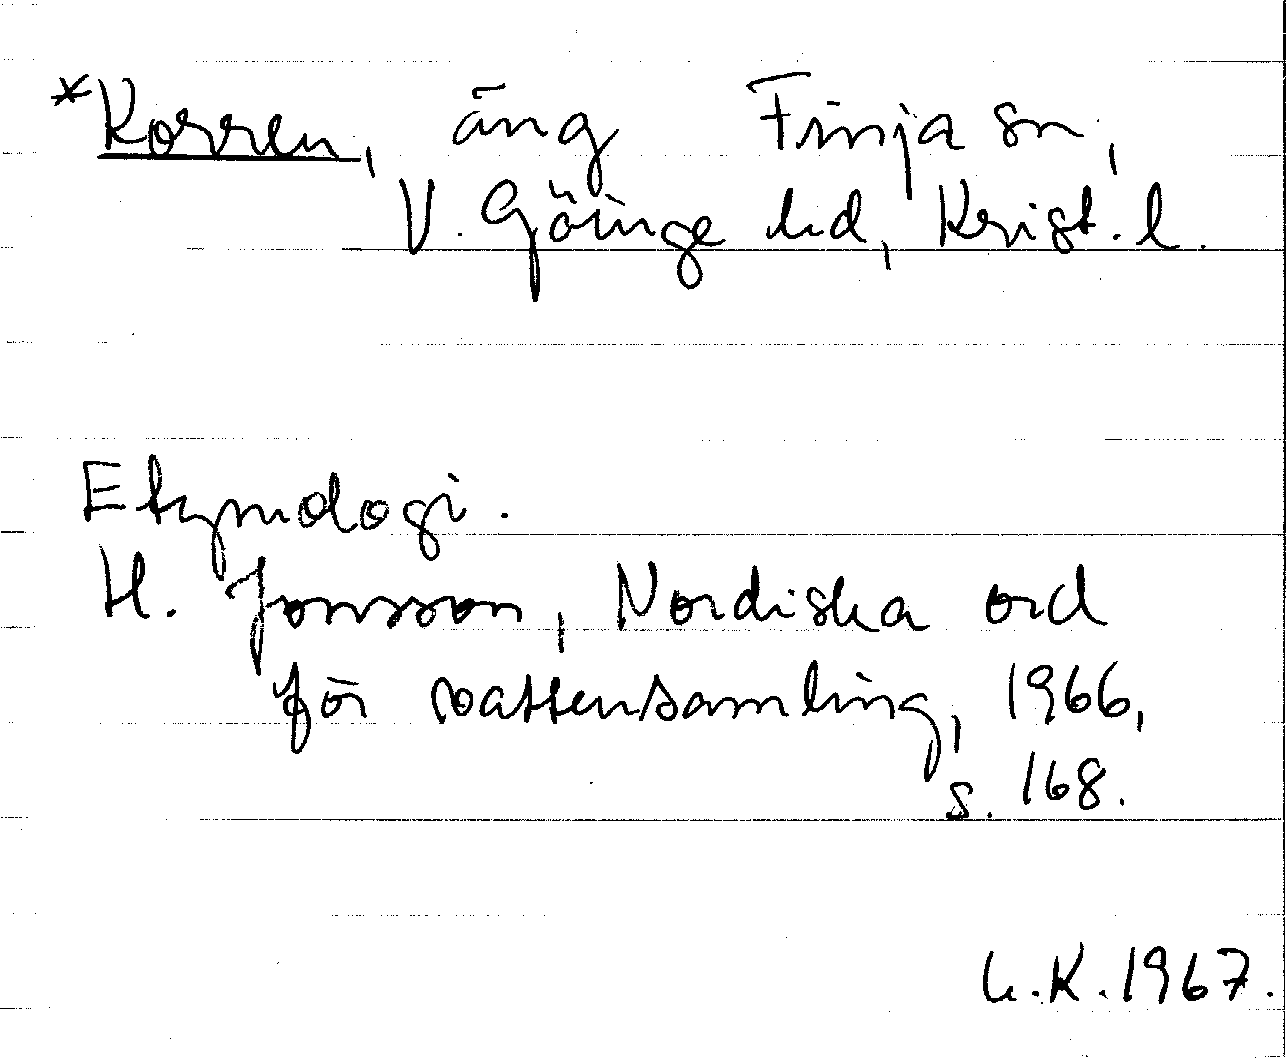 *Korren, äng Finja sn,
V. Göinge hd, Krist. l.
Etymologi.
H. Jonsson, Nordiska ord
för vattensamling, 1966,
s. 168.
L.K. 1967.